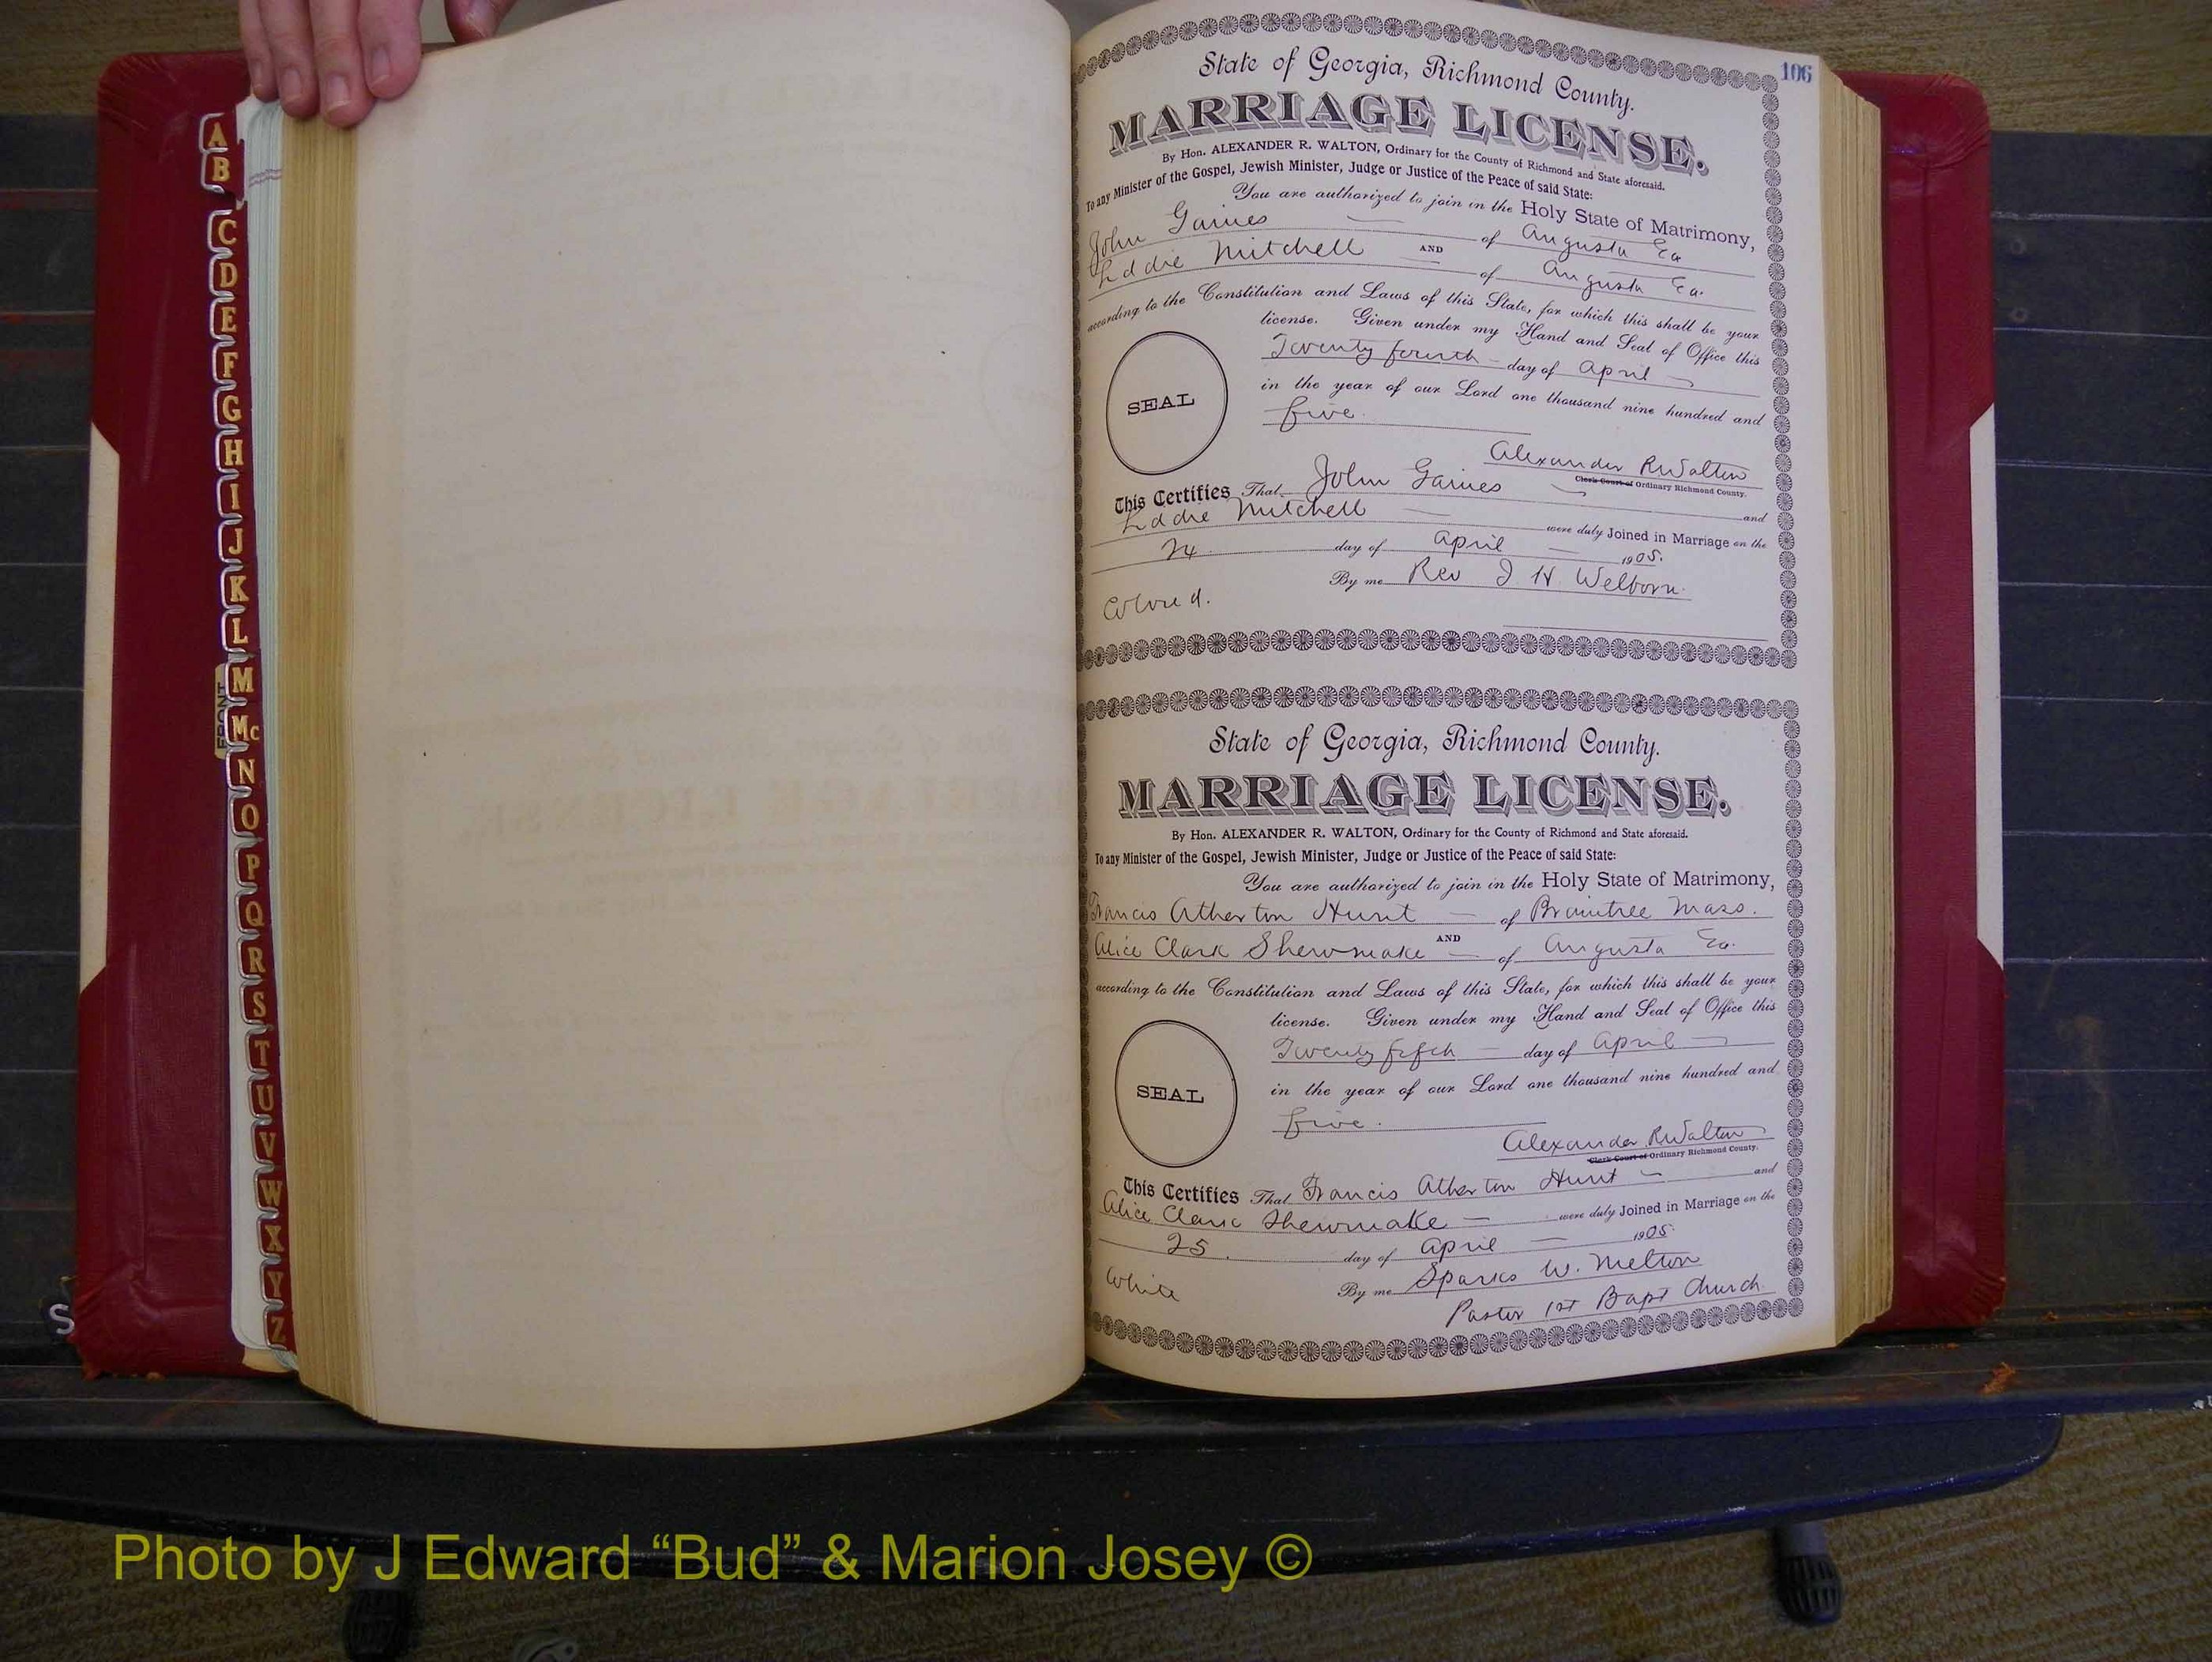 A
B
C
D
E
F
G
H
I
J
K
L
M
Mc
N
O
P
Q
R
S
T
U
V
W
X
Y
Z
FRONT
106
State of Georgia, Richmond County.
MARRIAGE LICENSE.
By Hon. ALEXANDER R. WALTON, Ordinary for the County of Richmond and State aforesaid.
To any Minister of the Gospel, Jewish Minister, Judge or Justice of the Peace of said State:
You are authorized to join in the Holy State of Matrimony,
John Gaines of Augusta Ga
AND
Eddie Mitchell of Augusta Ga.
according to the Constitution and Laws of this State, for which this shall be your
license. Given under my Hand and Seal of Office this
Twenty fourth day of April
in the year of our Lord one thousand nine hundred and
five.
SEAL
Alexander R Walton
Clerk Court of Ordinary Richmond County.
This Certifies That John Gaines and
Eddie Mitchell were duly Joined in Marriage on the
24 day of April 1905.
By me Rev J. H. Welborn.
Colored.
State of Georgia, Richmond County.
MARRIAGE LICENSE.
By Hon. ALEXANDER R. WALTON, Ordinary for the County of Richmond and State aforesaid.
To any Minister of the Gospel, Jewish Minister, Judge or Justice of the Peace of said State:
You are authorized to join in the Holy State of Matrimony,
Francis Atherton Hunt of Braintree Mass.
AND
Alice Clark Shewmake of Augusta Ga.
according to the Constitution and Laws of this State, for which this shall be your
license. Given under my Hand and Seal of Office this
Twenty fifth day of April
in the year of our Lord one thousand nine hundred and
five.
SEAL
Alexander R Walton
Clerk Court of Ordinary Richmond County.
This Certifies That Francis Atherton Hunt and
Alice Clark Shewmake were duly Joined in Marriage on the
25. day of April 1905.
By me Sparks W. Melton
White
Pastor 1st Bapt Church.
Photo by J Edward “Bud” & Marion Josey ©